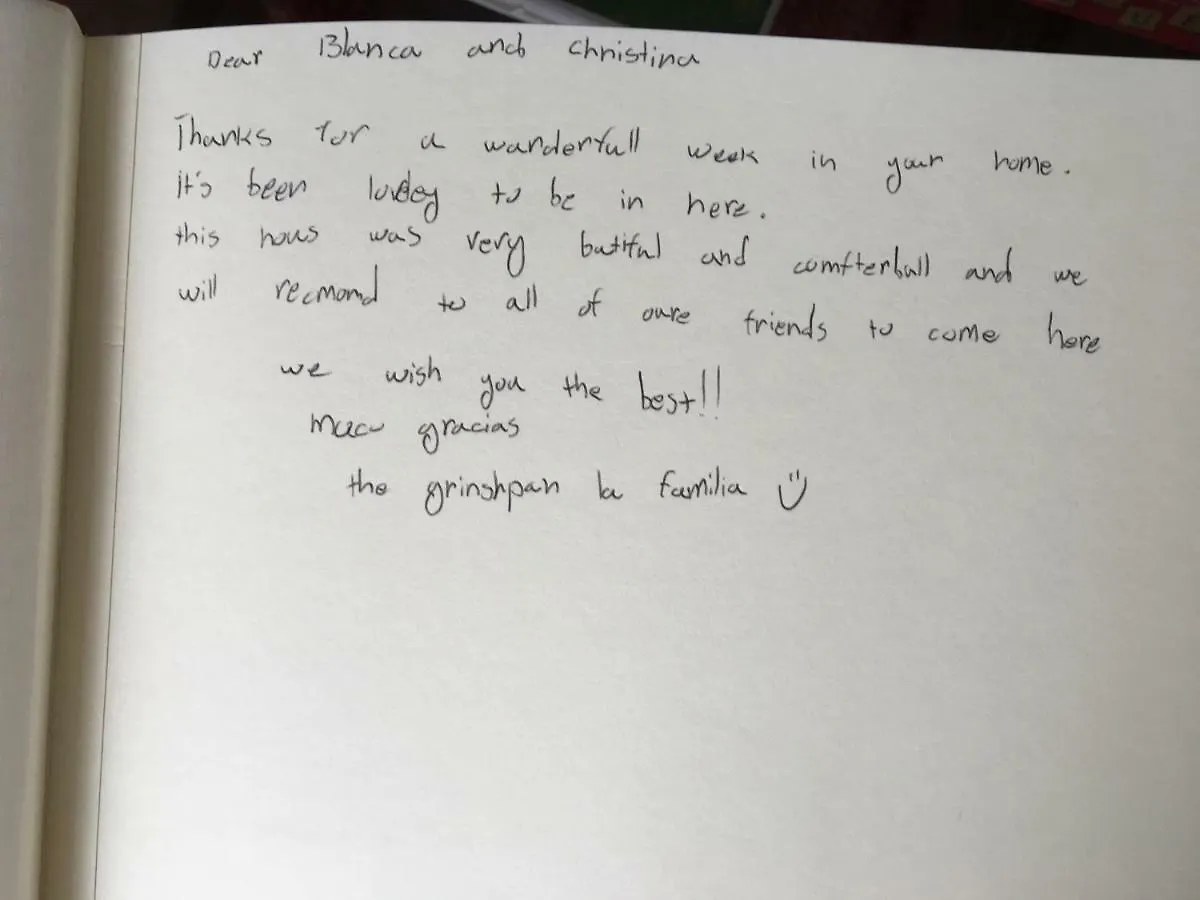 Dear Blanca and Christina
Thanks for a wanderfull week in your home.
it's been lovdey to be in here.
this hous was very butiful and comfterbull and we
will recmond to all of oure friends to come here
we wish you the best!!
mucu gracias
the grinshpan la familia